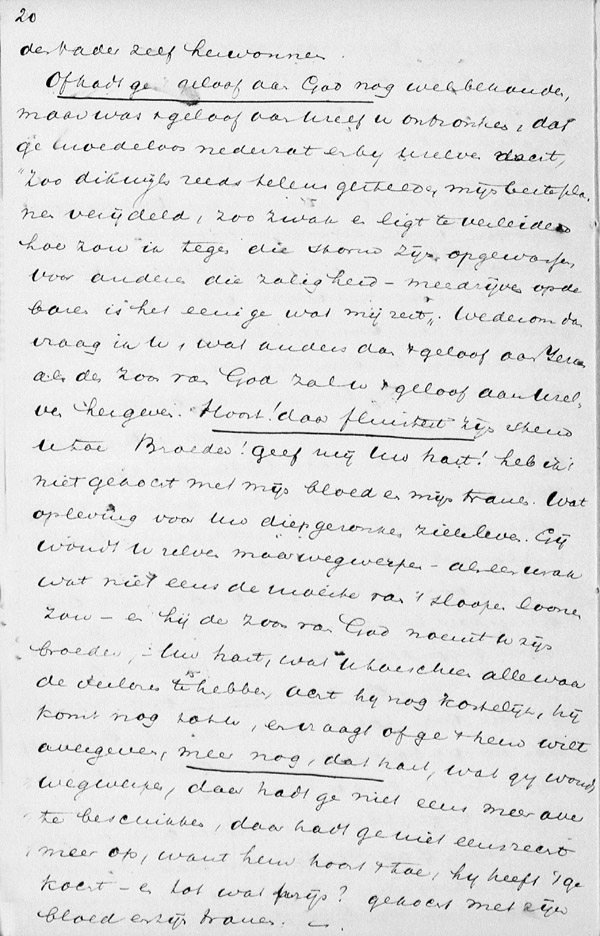 20
den Vader zelf herwonnen.
Of hadt ge geloof aan God nog wel behouden,
maar was 't geloof aan Uzelf u ontzonken, dat
ge moedeloos nederzat en by Uzelven dacht,
"Zoo dikwijls reeds telens gestreden, mijn beste pla-
nen verijdeld, zoo zwak en ligt te verleiden
hoe zou ik tegen die storm zijn opgewassen
voor anderen die zaligheid – meedrijven op de
baren is het eenige wat mij rest". Wederom dan
vraag ik U, wat anders dan 't geloof aan Jezus
als den Zoon van God zal u 't geloof aan Uzel-
ven hergeven. Hoort! daar fluistert zijn stem
U toe Broeder! geef mij Uw hart! heb ik 't
niet gekocht met mijn bloed en mijn tranen. Wat
opleving voor Uw diep gezonken zieleleven. Gij
woudt U zelven maar wegwerpen – als een wrak
wat niet eens de moeite van 't sloopen loonen
zou – en hij de Zoon van God noemt U zijn
broeder, – Uw hart, wat U toescheen alle waar
de verloren te hebben, acht hij nog kostelijk, hij
komt nog tot U, en vraagt of ge 't hem wilt
overgeven, meer nog, dat hart, wat gij woudt
wegwerpen, daar hadt ge niet eens meer over
te beschikken, daar hadt ge niet eens recht
meer op, want hem hoort 't toe, hy heeft 't ge
kocht – en tot wat prijs? gekocht met zijn
bloed en zijn tranen. –